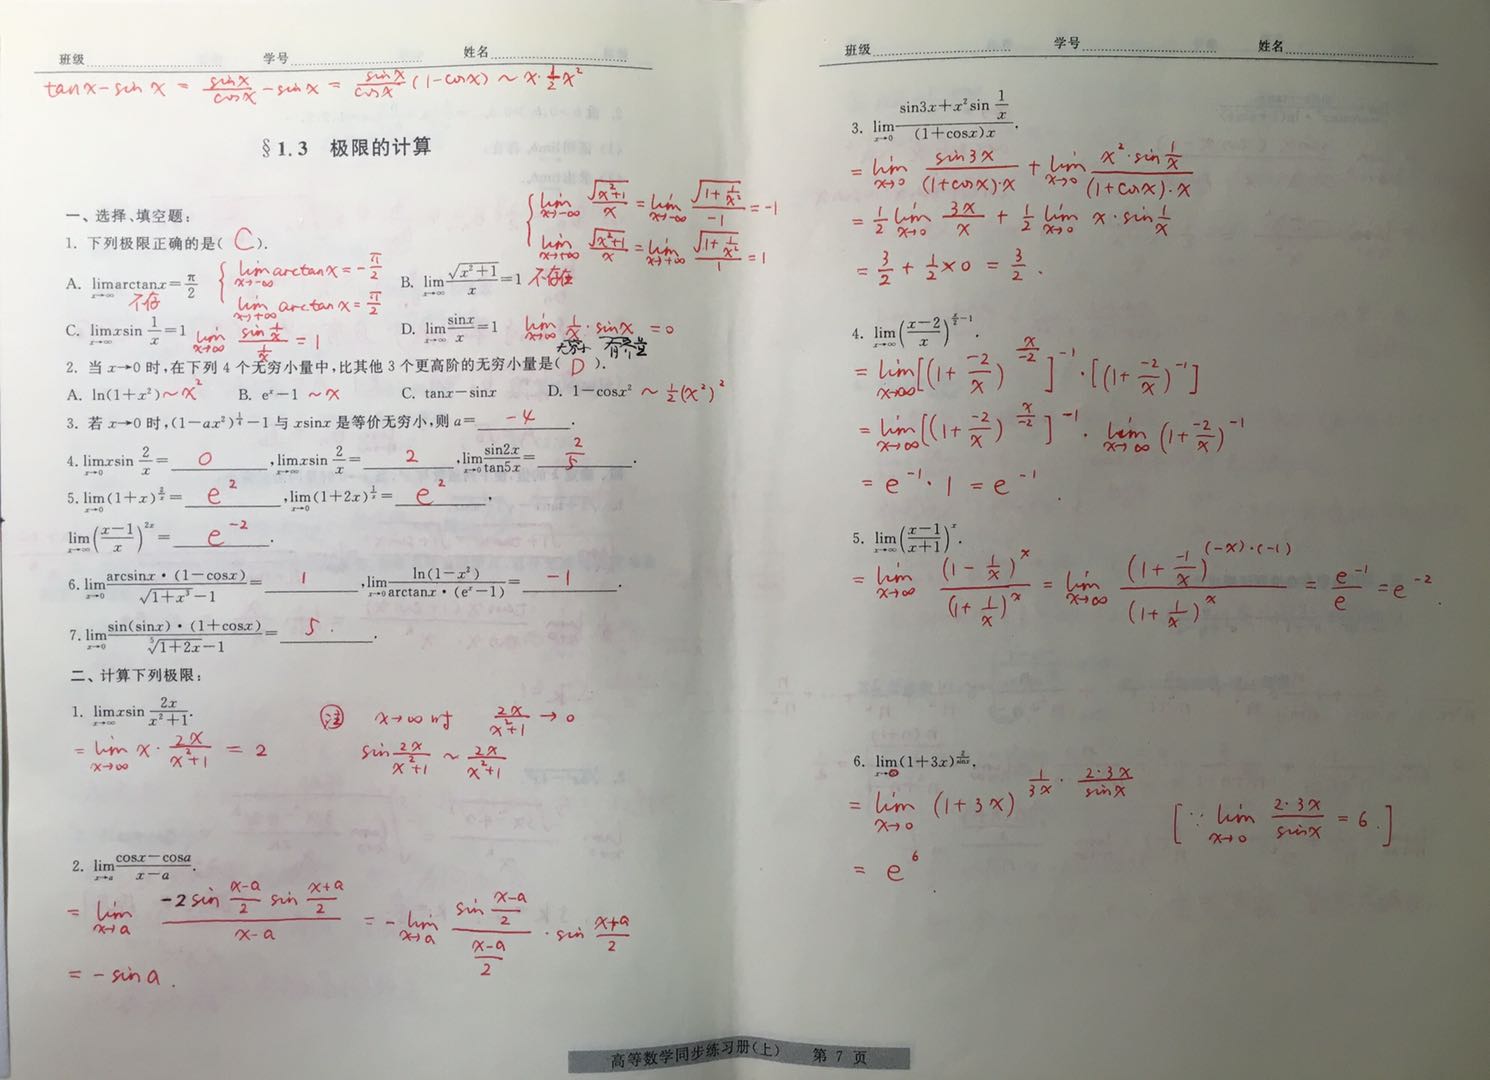 班级 学号 姓名
tanx-sinx = sinx/cosx - sinx = sinx/cosx (1-cosx) ~ x·½x²
§1.3 极限的计算
一、选择、填空题:
1. 下列极限正确的是( C ).
{ lim x→-∞ √(x²+1)/x = lim x→-∞ √(1+1/x²)/-1 = -1
lim x→+∞ √(x²+1)/x = lim x→+∞ √(1+1/x²)/1 = 1
A. lim x→∞ arctanx = π/2 不存 { lim x→-∞ arctanx = -π/2
lim x→+∞ arctanx = π/2
B. lim x→∞ √(x²+1)/x = 1 不存在
C. lim x→∞ xsin 1/x = 1 lim x→∞ sin(1/x)/(1/x) = 1
D. lim x→∞ sinx/x = 1 lim x→∞ 1/x · sinx = 0
无穷小 有界量
2. 当 x→0 时,在下列 4 个无穷小量中,比其他 3 个更高阶的无穷小量是( D ).
A. ln(1+x²) ~ x² B. eˣ-1 ~ x C. tanx-sinx D. 1-cosx² ~ ½(x²)²
3. 若 x→0 时,(1-ax²)^(1/4)-1 与 xsinx 是等价无穷小,则 a= -4 .
4. lim x→0 xsin 2/x = 0 , lim x→∞ xsin 2/x = 2 , lim x→0 sin2x/tan5x = 2/5 .
5. lim x→0 (1+x)^(2/x) = e² , lim x→0 (1+2x)^(1/x) = e² ,
lim x→∞ ((x-1)/x)^(2x) = e⁻² .
6. lim x→0 arcsinx·(1-cosx)/(√(1+x³)-1) = 1 , lim x→0 ln(1-x²)/(arctanx·(eˣ-1)) = -1 .
7. lim x→0 sin(sinx)·(1+cosx)/(⁵√(1+2x)-1) = 5 .
二、计算下列极限:
1. lim x→∞ xsin 2x/(x²+1).
= lim x→∞ x·2x/(x²+1) = 2
注 x→∞时 2x/(x²+1) → 0
sin 2x/(x²+1) ~ 2x/(x²+1)
2. lim x→a (cosx-cosa)/(x-a).
= lim x→a (-2 sin (x-a)/2 sin (x+a)/2)/(x-a) = -lim x→a (sin (x-a)/2)/((x-a)/2) · sin (x+a)/2
= -sin a .
班级 学号 姓名
3. lim x→0 (sin3x+x²sin 1/x)/((1+cosx)x).
= lim x→0 sin3x/((1+cosx)·x) + lim x→0 (x²·sin 1/x)/((1+cosx)·x)
= ½ lim x→0 3x/x + ½ lim x→0 x·sin 1/x
= 3/2 + ½×0 = 3/2 .
4. lim x→∞ ((x-2)/x)^(x/2-1).
= lim x→∞ [(1+ -2/x)^(x/-2)]⁻¹ · [(1+ -2/x)⁻¹]
= lim x→∞ [(1+ -2/x)^(x/-2)]⁻¹ · lim x→∞ (1+ -2/x)⁻¹
= e⁻¹ · 1 = e⁻¹ .
5. lim x→∞ ((x-1)/(x+1))ˣ.
= lim x→∞ (1-1/x)ˣ/(1+1/x)ˣ = lim x→∞ (1+ -1/x)^((-x)·(-1))/(1+1/x)ˣ = e⁻¹/e = e⁻² .
6. lim x→0 (1+3x)^(2/sinx).
= lim x→0 (1+3x)^(1/3x · 2·3x/sinx) [∵ lim x→0 2·3x/sinx = 6 .]
= e⁶ .
高等数学同步练习册(上) 第 7 页